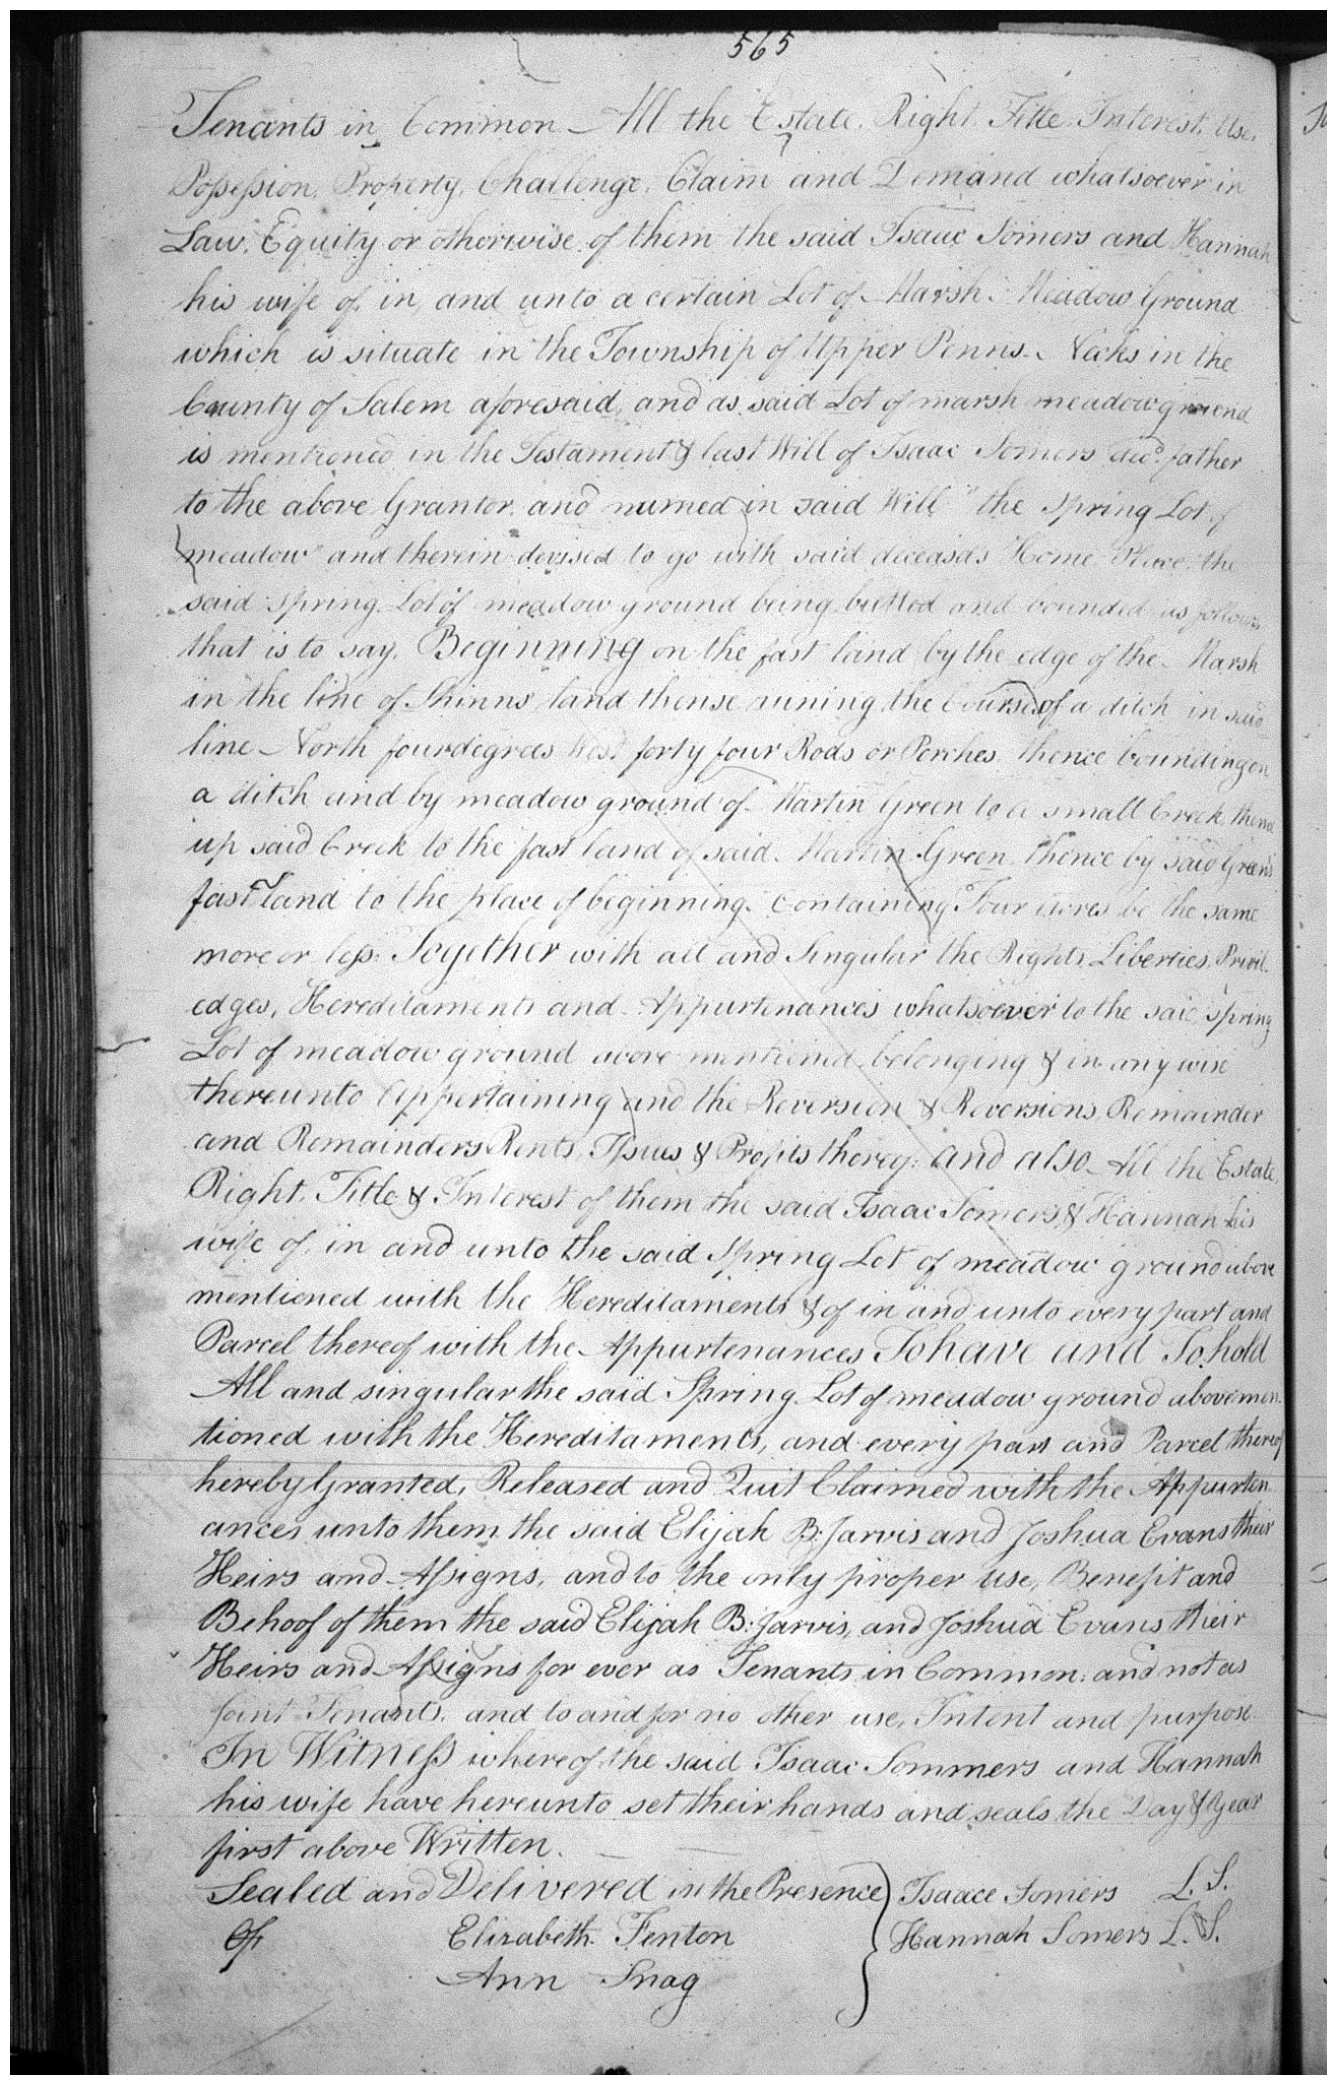 565
Tenants in Common All the Estate. Right. Title. Interest. Use.
Possession. Property. Challenge. Claim and Demand whatsoever in
Law. Equity or otherwise. of them the said Isaac Somers and Hannah
his wife of. in, and unto a certain Lot of Marsh. Meadow Ground
which is situate in the Township of Upper Penns. Necks in the
County of Salem aforesaid, and as said Lot of marsh meadow ground
is mentioned in the Testament & last Will of Isaac Somers decd. father
to the above Grantor and named in said Will "the Spring Lot of
meadow" and therein devised to go with said deceasds Home Place. the
said Spring Lot of meadow ground being butted and bounded as follows
that is to say. Beginning on the fast land by the edge of the Marsh
in the line of Shinns land thense runing the Course of a ditch in said
line North four degrees West forty four Rods or Perches thence bounding on
a ditch and by meadow ground of Martin Green to a small Creek thence
up said Creek to the fast land of said Martin Green thence by said Greens
fast land to the place of beginning. Containing Four acres be the same
more or less: Together with all and Singular the Rights Liberties, Privil-
edges, Hereditaments and Appurtenances whatsoever to the said Spring
Lot of meadow ground above mentioned belonging & in any wise
thereunto Appertaining and the Reversion & Reversions, Remainder
and Remainders Rents, Issues & Profits thereof: and also All the Estate,
Right. Title & Interest of them the said Isaac Somers & Hannah his
wife of, in and unto the said Spring Lot of meadow ground above
mentioned with the Hereditaments & of in and unto every part and
Parcel thereof with the Appurtenances To have and To hold
All and singular the said Spring Lot of meadow ground above men-
tioned with the Hereditaments, and every part and Parcel thereof
hereby Granted, Released and Quit Claimed with the Appurten
ances unto them the said Elijah B: Jarvis and Joshua Evans their
Heirs and Assigns, and to the only proper use, Benefit and
Behoof of them the said Elijah B: Jarvis, and Joshua Evans their
Heirs and Assigns for ever as Tenants in Common. and not as
Joint Tenants. and to and for no other use, Intent and purpose
In Witness whereof the said Isaac Sommers and Hannah
his wife have hereunto set their hands and seals the Day & Year
first above Written.
Sealed and Delivered in the Presence Isaace Somers L. S.
Of Elizabeth Fenton Hannah Somers L. S.
Ann Snag